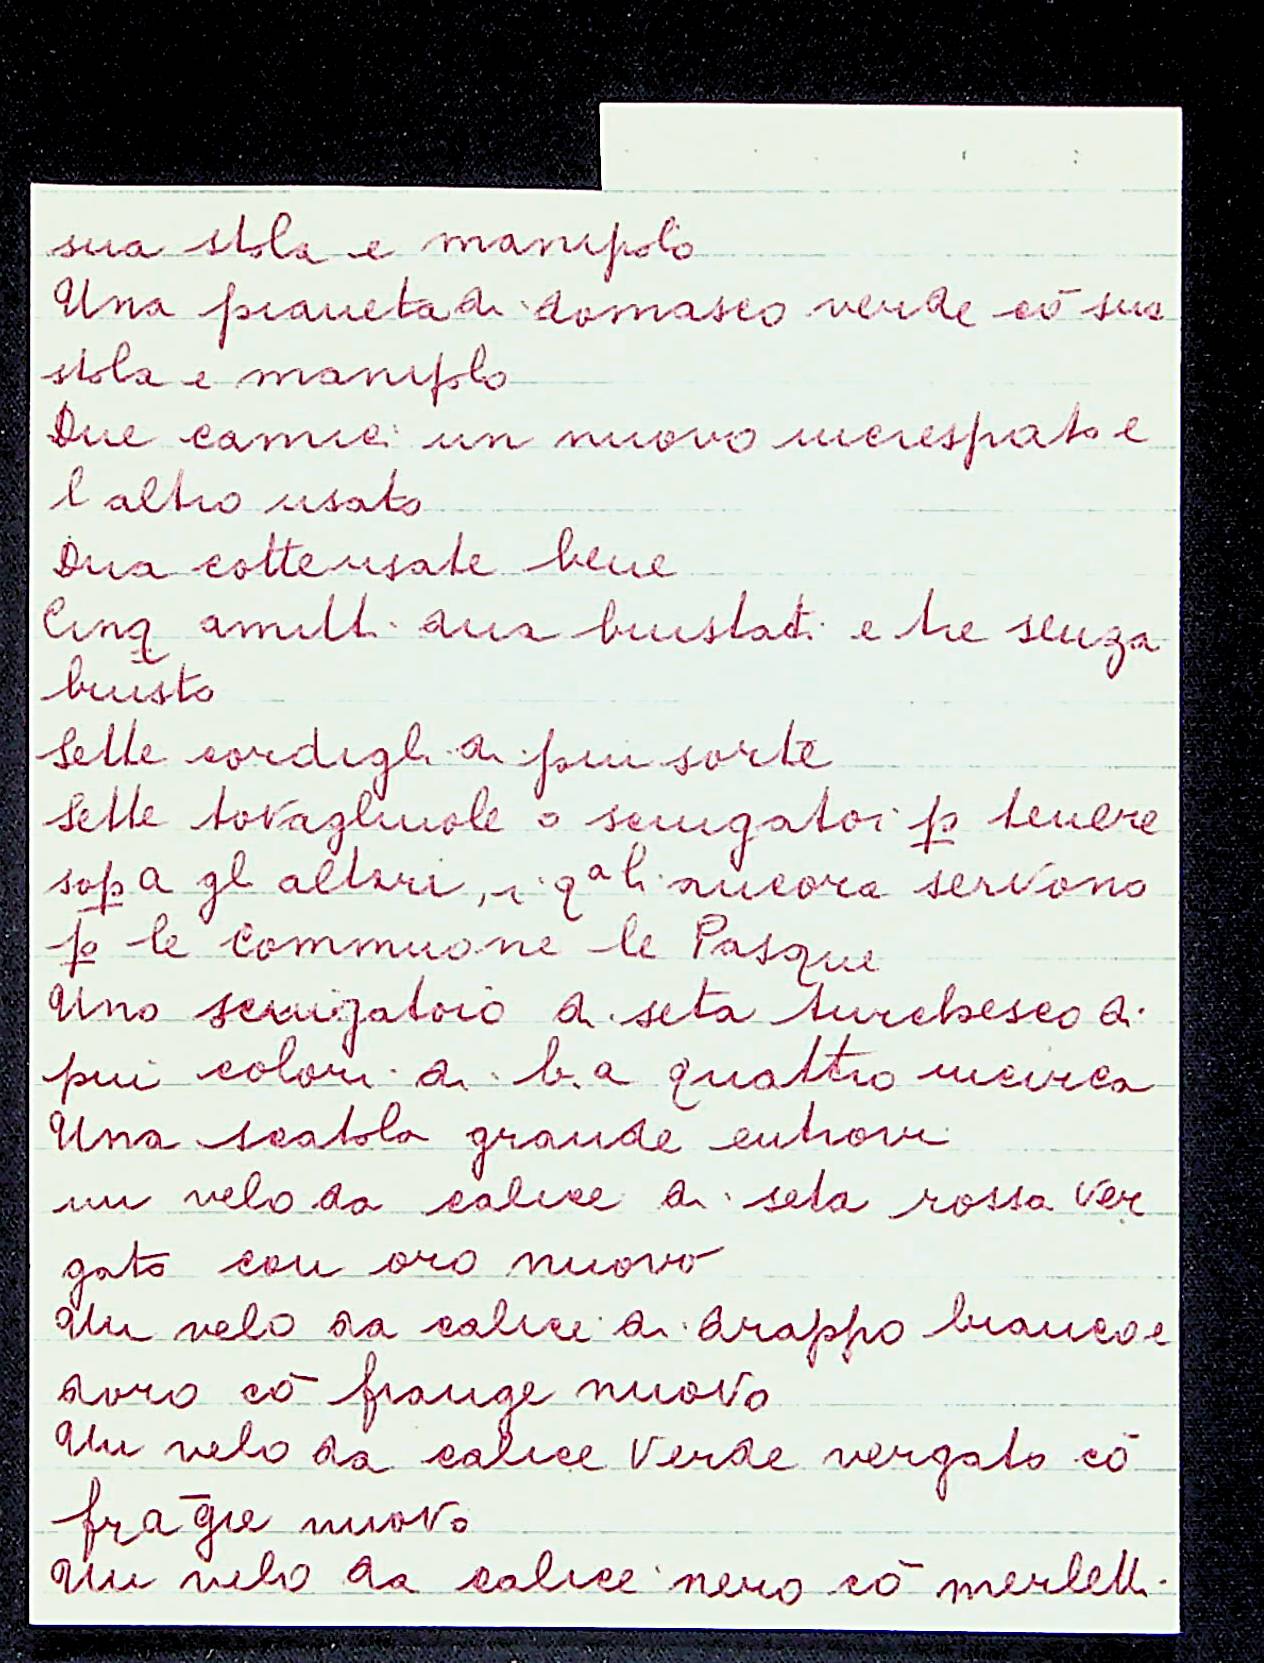 sua stola e manipolo
Una pianeta di domasco verde cō sua
stola e manipolo
Due camici un nuovo increspato e
l altro usato
Dua cotte usate bene
Cinq amitti dua bustati e tre senza
busto
Sette cordigli di piu sorte
Sette tovagliuole o sciugatoi p̱ tenere
sop̱a gli altari, i qali ancora servono
p̱ le Commuone le Pasque
Uno sciugatoio di seta turchesco di
piu colori di b.a quattro incirca
Una scatola grande entrovi
un velo da calice di seta rossa ver
gato con oro nuovo
Un velo da calice di drappo bianco e
doro cō frange nuovo
Un velo da calice verde vergato cō
frāgie nuovo
Un velo da calice nero cō merletti